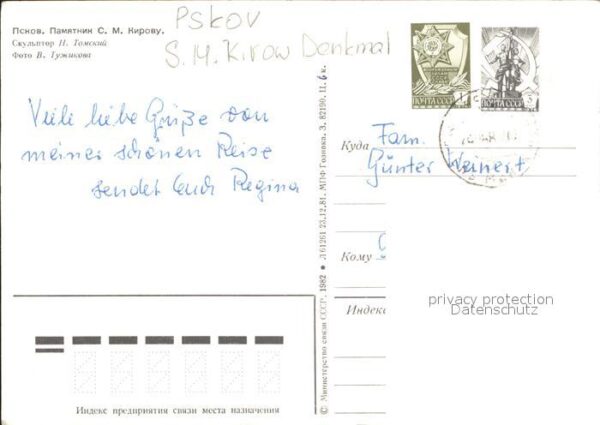 Псков. Памятник С. М. Кирову.
Скульптор Н. Томский
Фото В. Тужикова
Pskov
S. M. Kirow Denkmal
Viele liebe Grüße von
meiner schönen Reise
sendet Euch Regina
ПОЧТА СССР
ПОЧТА СССР
Куда Fam.
Günter Weinert
Кому
Индекс
privacy protection
Datenschutz
Индекс предприятия связи места назначения
© Министерство связи СССР. 1982 ● Л 61261 23.12.81. МПФ Гознака. З. 82190. Ц. 6 к.